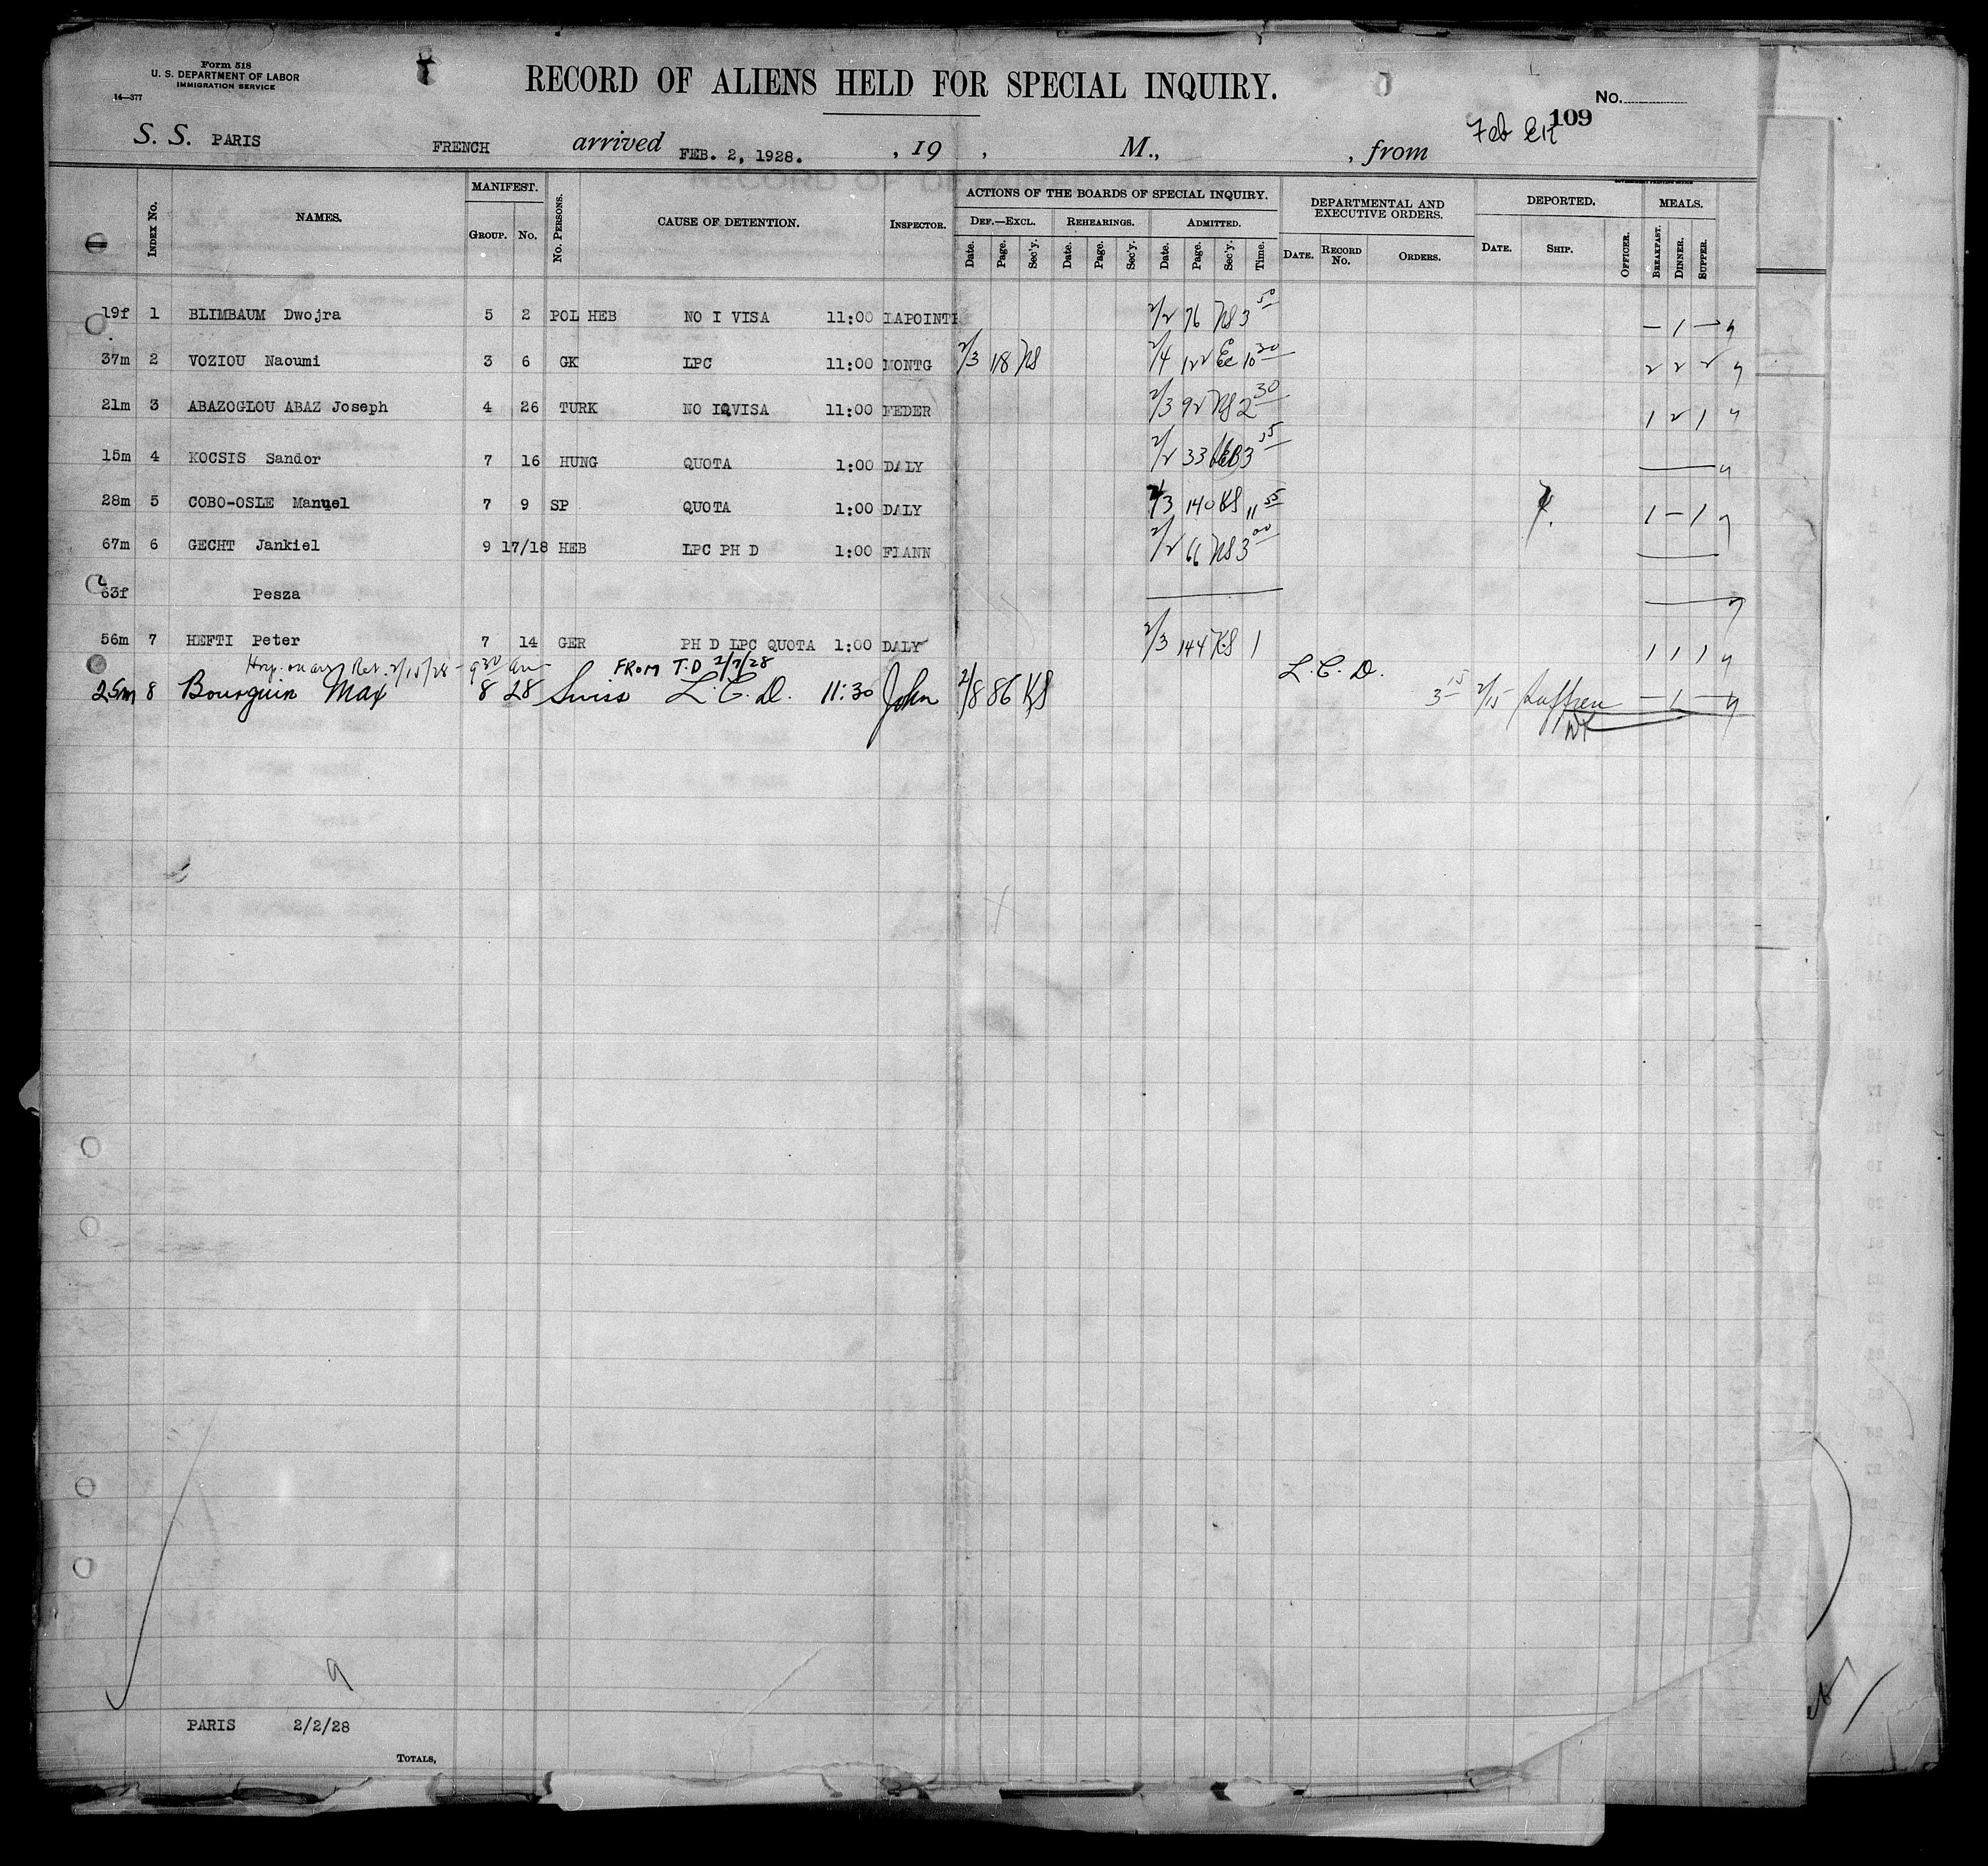 Form 518
U. S. DEPARTMENT OF LABOR
IMMIGRATION SERVICE
14—377
RECORD OF ALIENS HELD FOR SPECIAL INQUIRY.
No.
109
Feb
S. S. PARIS FRENCH arrived FEB. 2, 1928. , 19 , M., , from
GOVERNMENT PRINTING OFFICE
Index No. NAMES. MANIFEST. Group. No. No. Persons. CAUSE OF DETENTION. Inspector. ACTIONS OF THE BOARDS OF SPECIAL INQUIRY. Def.—Excl. Date. Page. Sec'y. Rehearings. Date. Page. Sec'y. Admitted. Date. Page. Sec'y. Time. DEPARTMENTAL AND EXECUTIVE ORDERS. Date. Record No. Orders. DEPORTED. Date. Ship. Officer. MEALS. Breakfast. Dinner. Supper.
19f 1 BLIMBAUM Dwojra 5 2 POL HEB NO I VISA 11:00 LAPOINTE 2/2 76 NS 3 50 — 1 —
37m 2 VOZIOU Naoumi 3 6 GK LPC 11:00 MONTG 2/3 18 NS 2/4 122 Ec 10 30 2 2 2
21m 3 ABAZOGLOU ABAZ Joseph 4 26 TURK NO IQVISA 11:00 FEDER 2/3 92 NS 2 30 1 2 1
15m 4 KOCSIS Sandor 7 16 HUNG QUOTA 1:00 DALY 2/2 33 3 35
28m 5 COBO-OSLE Manuel 7 9 SP QUOTA 1:00 DALY 2/3 140 KS 11 55 1 — 1
67m 6 GECHT Jankiel 9 17/18 HEB LPC PH D 1:00 FIANN 2/2 66 NS 3 00
63f Pesza
56m 7 HEFTI Peter 7 14 GER PH D LPC QUOTA 1:00 DALY 2/3 144 KS 1 1 1 1
Ret. 2/15/28 - 9 30 am FROM T.D 2/7/28 L.C.D.
25m 8 Bourquin Max 8 28 Swiss L.C.D. 11:30 John 2/8 86 KS 3 15 2/15 Suffren — 1 —
9
PARIS 2/2/28
Totals,